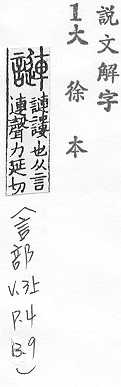 說文解字
1大徐本
謰
謰謱也从言
連聲力延切
(言部 V.3上 P.4 B.9)